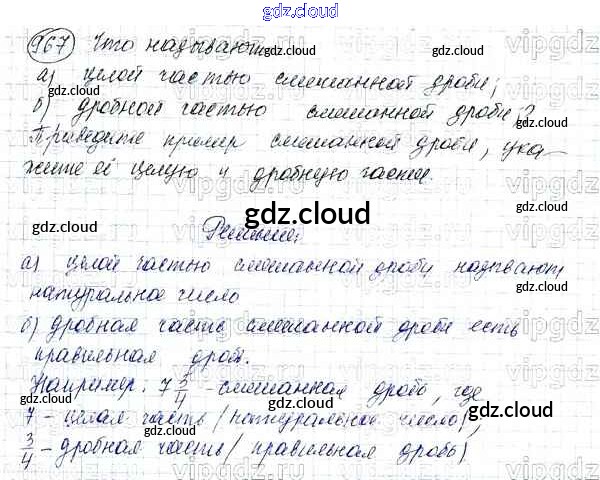 gdz.cloud
gdz.cloud gdz.cloud
967 Что называют
а) целой частью смешанной дроби;
б) дробной частью смешанной дроби?
Приведите пример смешанной дроби, ука-
жите её целую и дробную части.
gdz.cloud gdz.cloud
gdz.cloud
Решение:
gdz.cloud gdz.cloud
а) целой частью смешанной дроби называют
натуральное число
б) дробная часть смешанной дроби есть
правильная дробь.
gdz.cloud gdz.cloud
Например: 7 3/4 - смешанная дробь, где
7 - целая часть (натуральное число),
3/4 - дробная часть (правильная дробь)
gdz.cloud gdz.cloud
gdz.cloud